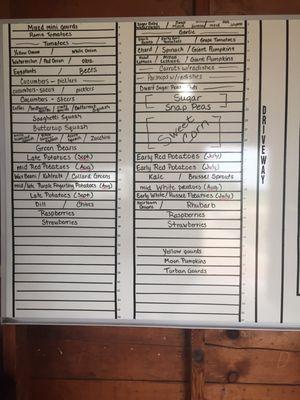 Mixed mini gourds
Roma Tomatoes
Tomatoes
Yellow Onion / White Onion
Watermelon / Red Onion / Okra
Eggplants / Beets
Cucumbers - picklers
cucumbers - slicers / picklers
Cucumbers - slicers
Zucchini
Spaghetti Squash
Buttercup Squash
Green Beans
Late Potatoes (Sept)
mid Red Potatoes (Aug)
Wax Beans / Kohlrabi / Collard Greens
mid/late Purple Fingerling Potatoes (Aug)
Late Potatoes (Sept)
Dill / Chives
Raspberries
Strawberries
Garlic
Chard / Spinach / Giant Pumpkins
Giant Pumpkins
Carrots w/radishes
Parsnips w/radishes
Dwarf Sugar Peas
Sugar
Snap Peas
Sweet
Corn
Early Red Potatoes (July)
Early Red Potatoes (July)
Kale / Brussel Sprouts
mid White potatoes (Aug)
Early White/Russet Potatoes (July)
Rhubarb
Raspberries
Strawberries
Yellow gourds
Moon Pumpkins
Turban Gourds
DRIVEWAY